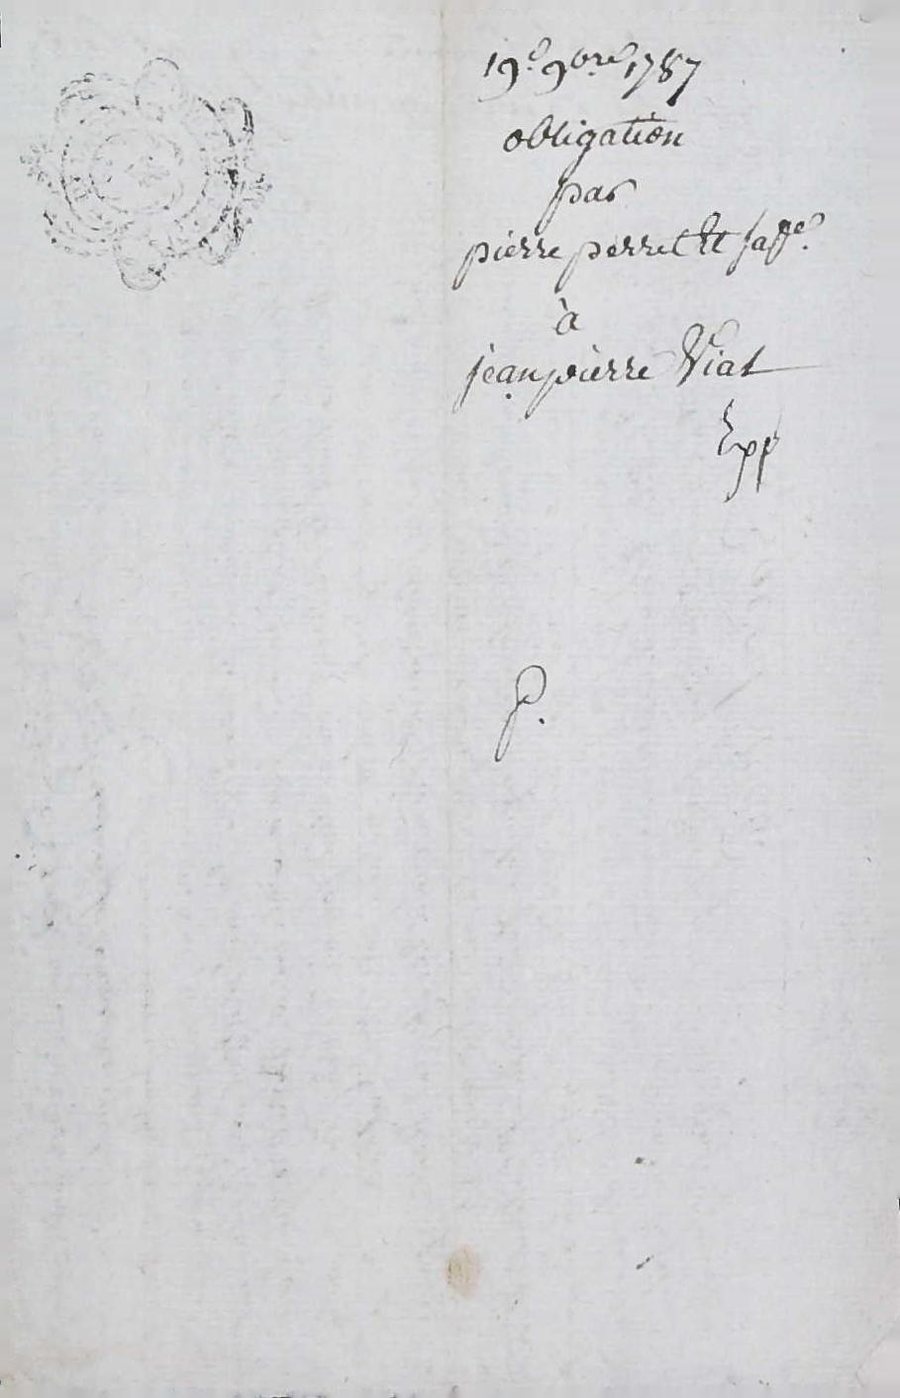 19e 9bre 1787
obligation
par
pierre perret Et sa ffe.
à
jean pierre Viat
Epp
P.